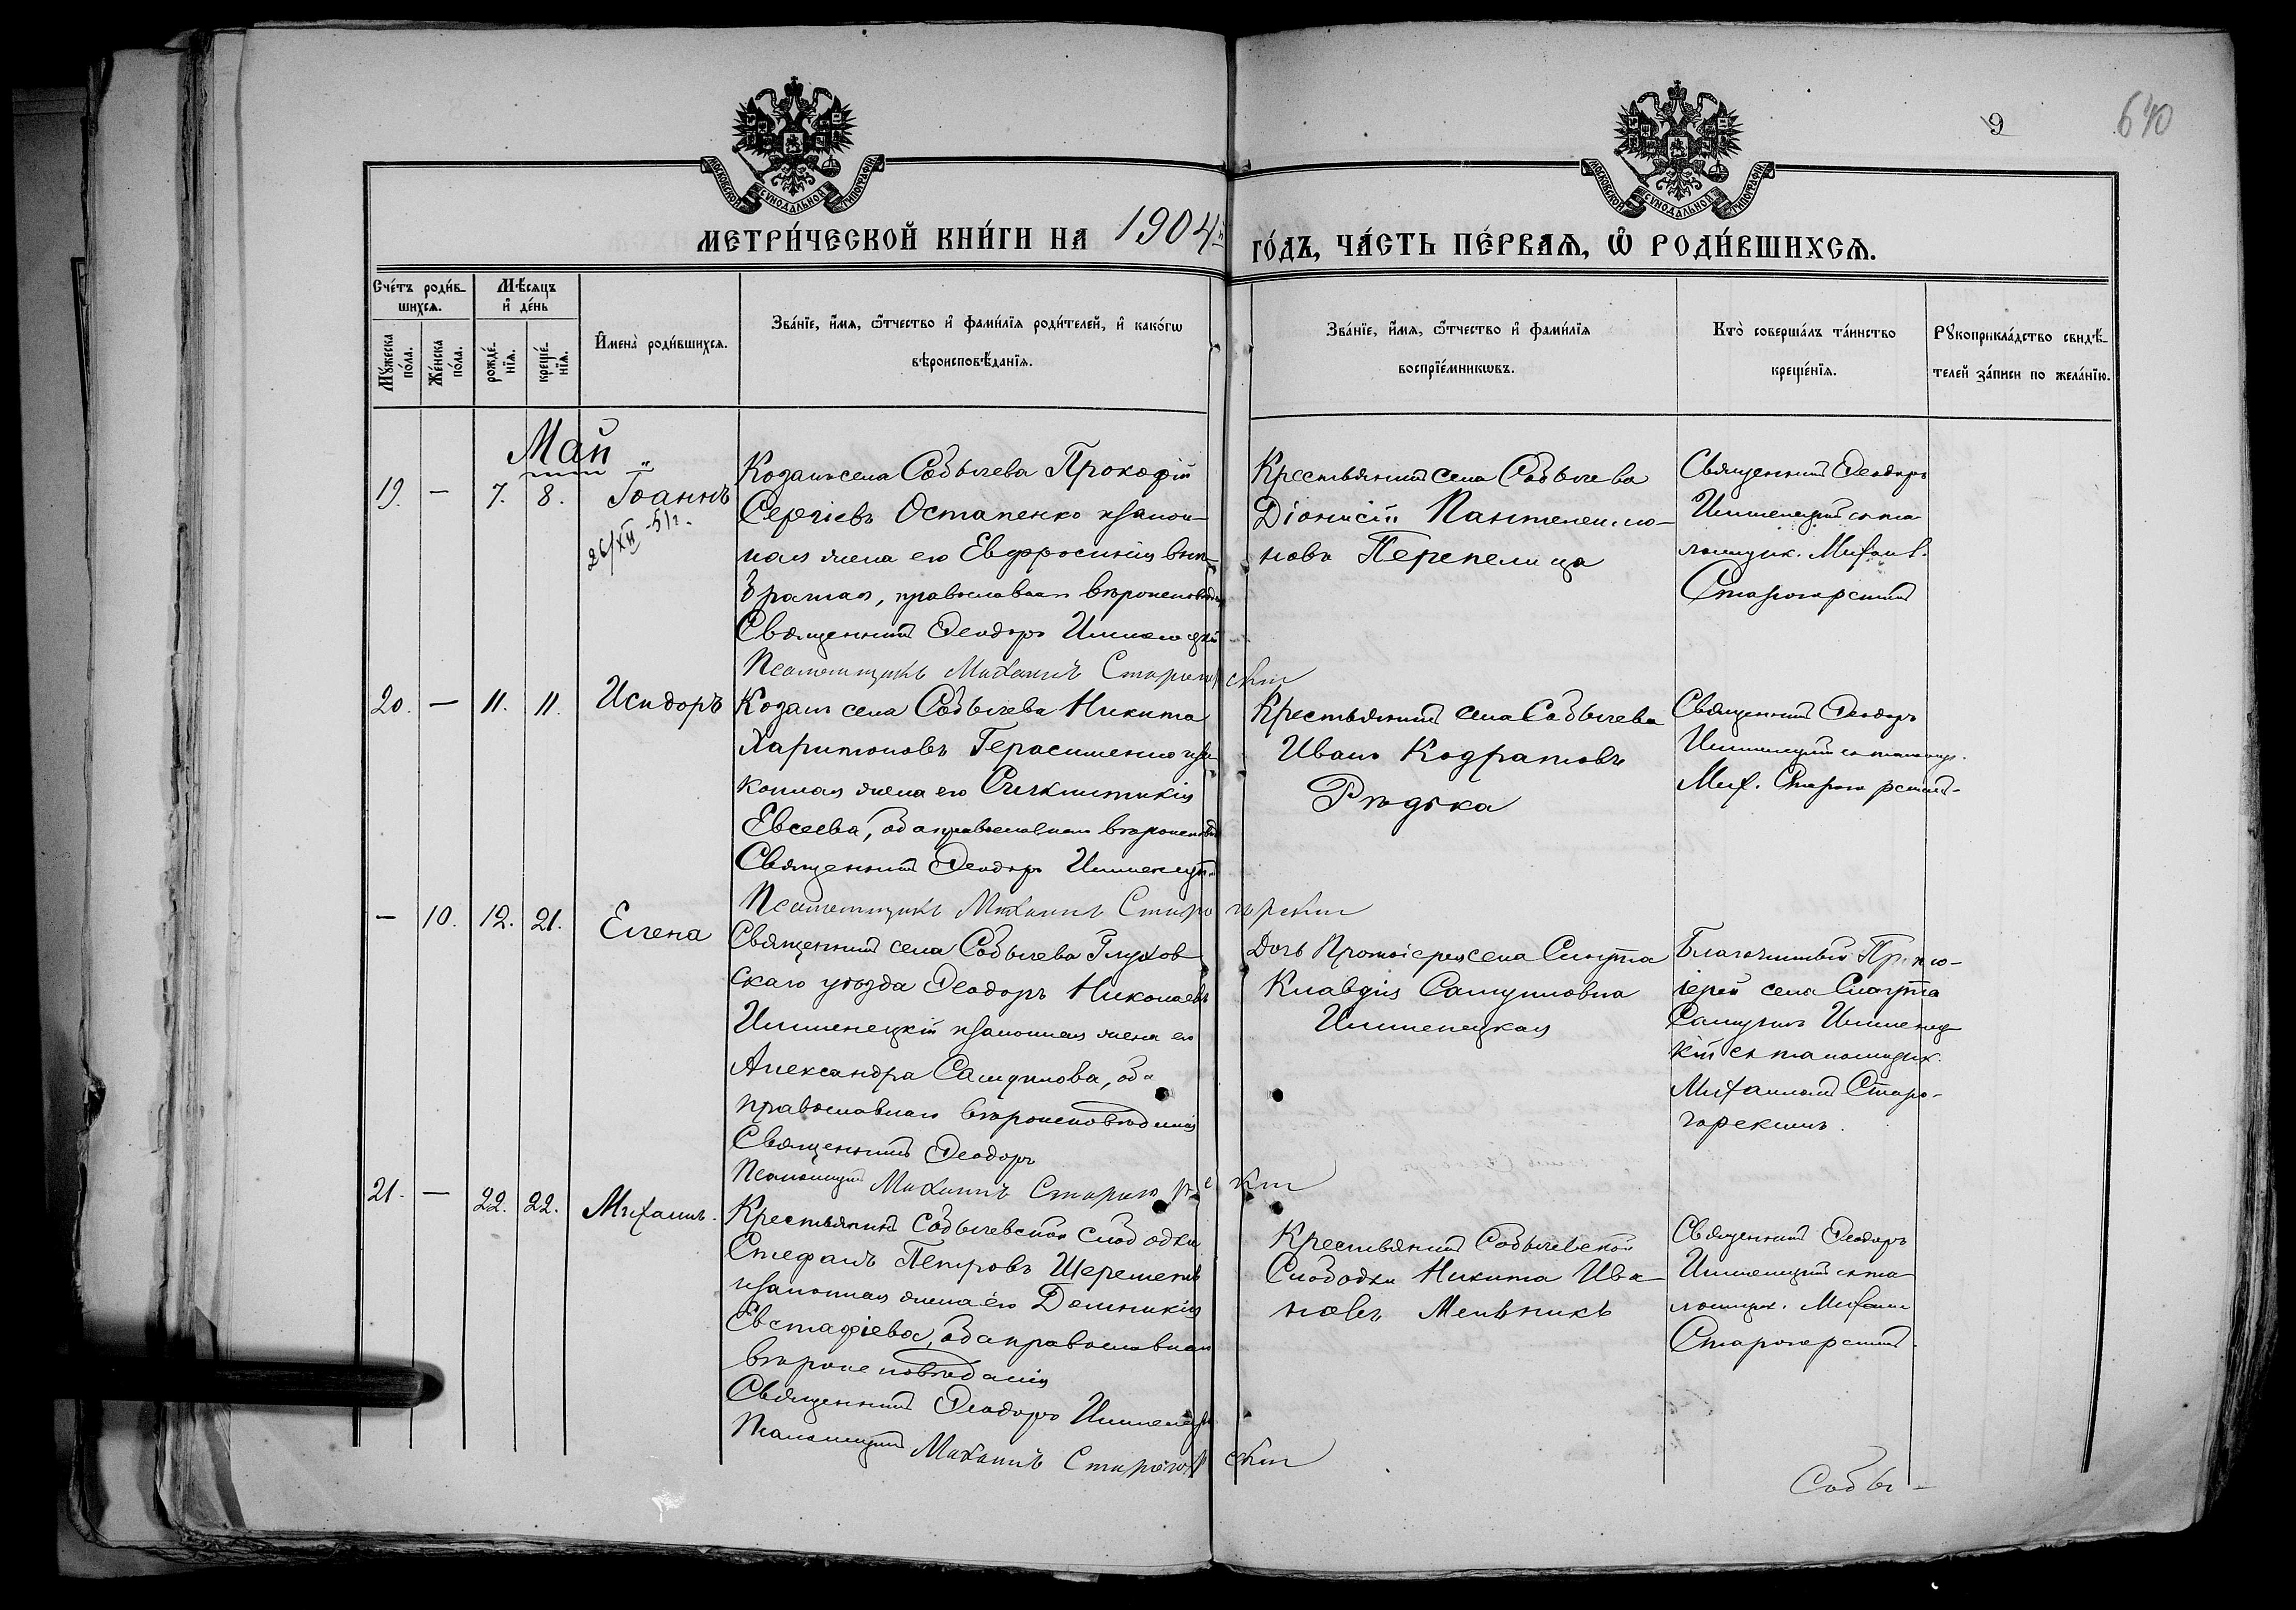 9
640
МЕТРИ́ЧЕСКОЙ КНИ́ГИ НА 1904 й
ГО́ДЪ, ЧА́СТЬ ПЕ́РВАѦ, Ѡ҆ РОДИ́ВШИХСѦ.
Сче́тъ роди́в-
шихсѧ.
Мꙋ́жеска по́ла.
Же́нска по́ла.
Мѣ́сѧцъ
и҆ де́нь
рожде́-нїѧ.
креще́-нїѧ.
И҆мена̀ роди́вшихсѧ.
Зва́нїе, и҆́мѧ, ѻ҆́тчество и҆ фами́лїѧ роди́телей, и҆ како́гѡ
вѣроисповѣ́данїѧ.
Зва́нїе, и҆́мѧ, ѻ҆́тчество и҆ фами́лїѧ
воспрїе́мникѡвъ.
Кто̀ соверша́лъ та́инство
креще́нїѧ.
Рꙋкоприкла́дство свидѣ́-
телей за́писи по жела́нїю.
Май
19. — 7. 8. Іоаннъ
26/XII -51 г.
Козакъ села Собычева Прокофій
Сергіевъ Остапенко и закон-
ная жена его Евфросинія
православнаго вѣроисповѣд
Священникъ Ѳеодоръ Ишменецкій
Псаломщикъ Михаилъ Старогорскій
Крестьянинъ села Собычева
Діонисій Пантелеимо-
новъ Перепелица
Священникъ Ѳеодоръ
Ишменецкій съ пса
ломщик. Михаил.
Старогорскимъ
20. — 11. 11. Исидоръ
Козакъ села Собычева Никита
Харитоновъ Герасименко и за-
конная жена его Синклитикія
Евсеева, оба православнаго вѣроисповѣд
Священникъ Ѳеодоръ Ишменецкій
Псаломщикъ Михаилъ Старогорскій
Крестьянинъ села Собычева
Иванъ Кодратовъ
Рѣдька
Священникъ Ѳеодоръ
Ишменецкій съ псаломщ.
Мих. Старогорскимъ
— 10. 12. 21. Елена
Священникъ села Собычева Глухов
скаго уѣзда Ѳеодоръ Николаевъ
Ишменецкій и законная жена его
Александра Самуилова, оба
православнаго вѣроисповѣданія
Священникъ Ѳеодоръ
Псаломщикъ Михаилъ Старогорскій
Дочь Протоіерея села
Клавдія Самуиловна
Ишменецкая
Благочинный Прото-
іерей села
Самуилъ Ишменец-
кій съ псаломщик.
Михаиломъ Старо-
горскимъ.
21. — 22. 22. Михаилъ.
Крестьянинъ Собычевской слободки
Стефанъ Петровъ Шереметъ
и законная жена его Домникія
Евстафіева, оба православнаго
вѣроисповѣданія
Священникъ Ѳеодоръ Ишменецкій
Псаломщикъ Михаилъ Старогорскій
Крестьянинъ Собычевской
Слободки Никита Ива-
новъ Мельникъ
Священникъ Ѳеодоръ
Ишменецкій съ пса
ломщик. Михаил
Старогорскимъ.
Собы-